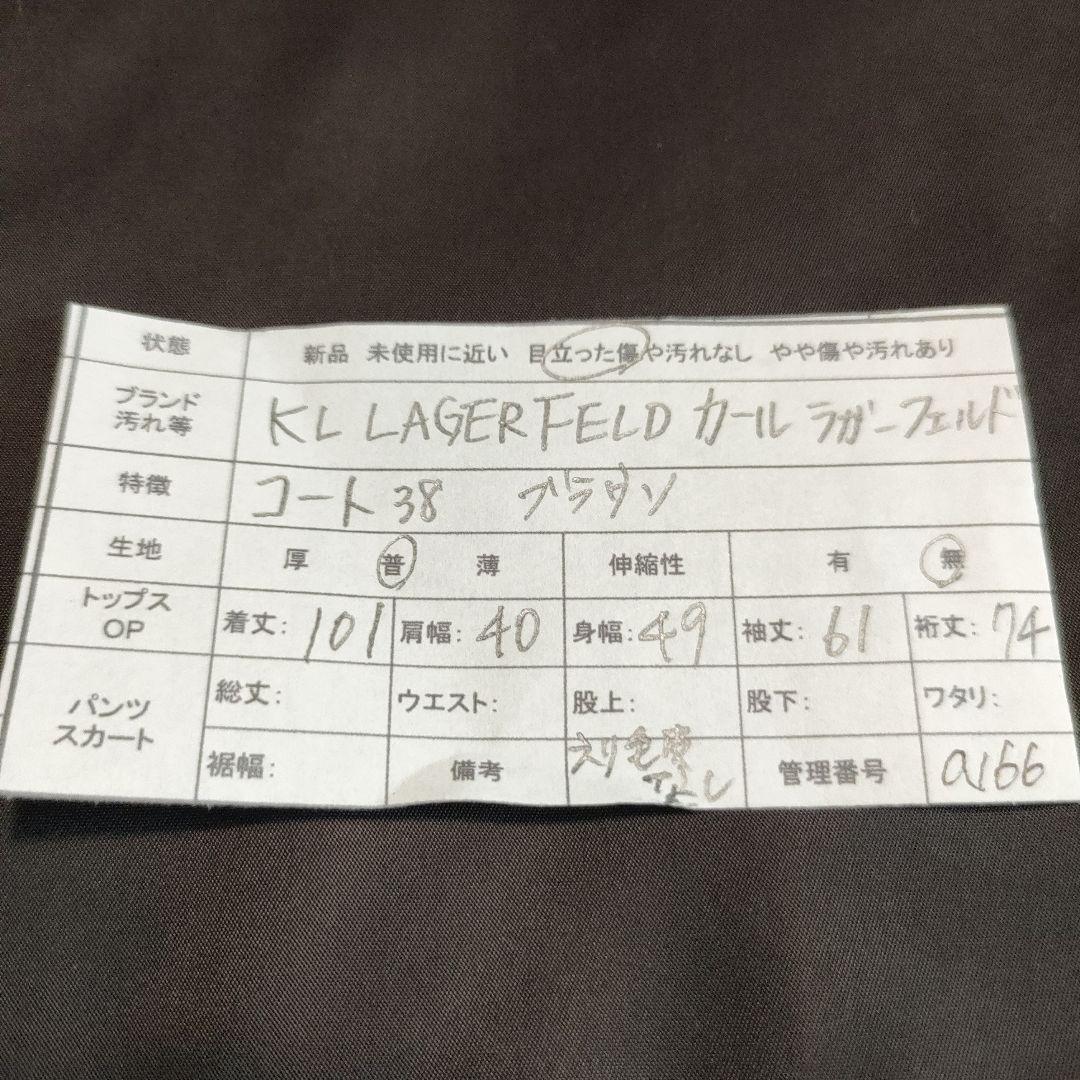 状態 新品 未使用に近い 目立った傷や汚れなし やや傷や汚れあり
ブランド
汚れ等
KL LAGERFELD カール ラガーフェルド
特徴 コート 38 ブラウン
生地 厚 普 薄 伸縮性 有 無
トップス
OP
着丈: 101 肩幅: 40 身幅: 49 袖丈: 61 裄丈: 74
パンツ
スカート
総丈: ウエスト: 股上: 股下: ワタリ:
裾幅: 備考 えり なし 管理番号 a166